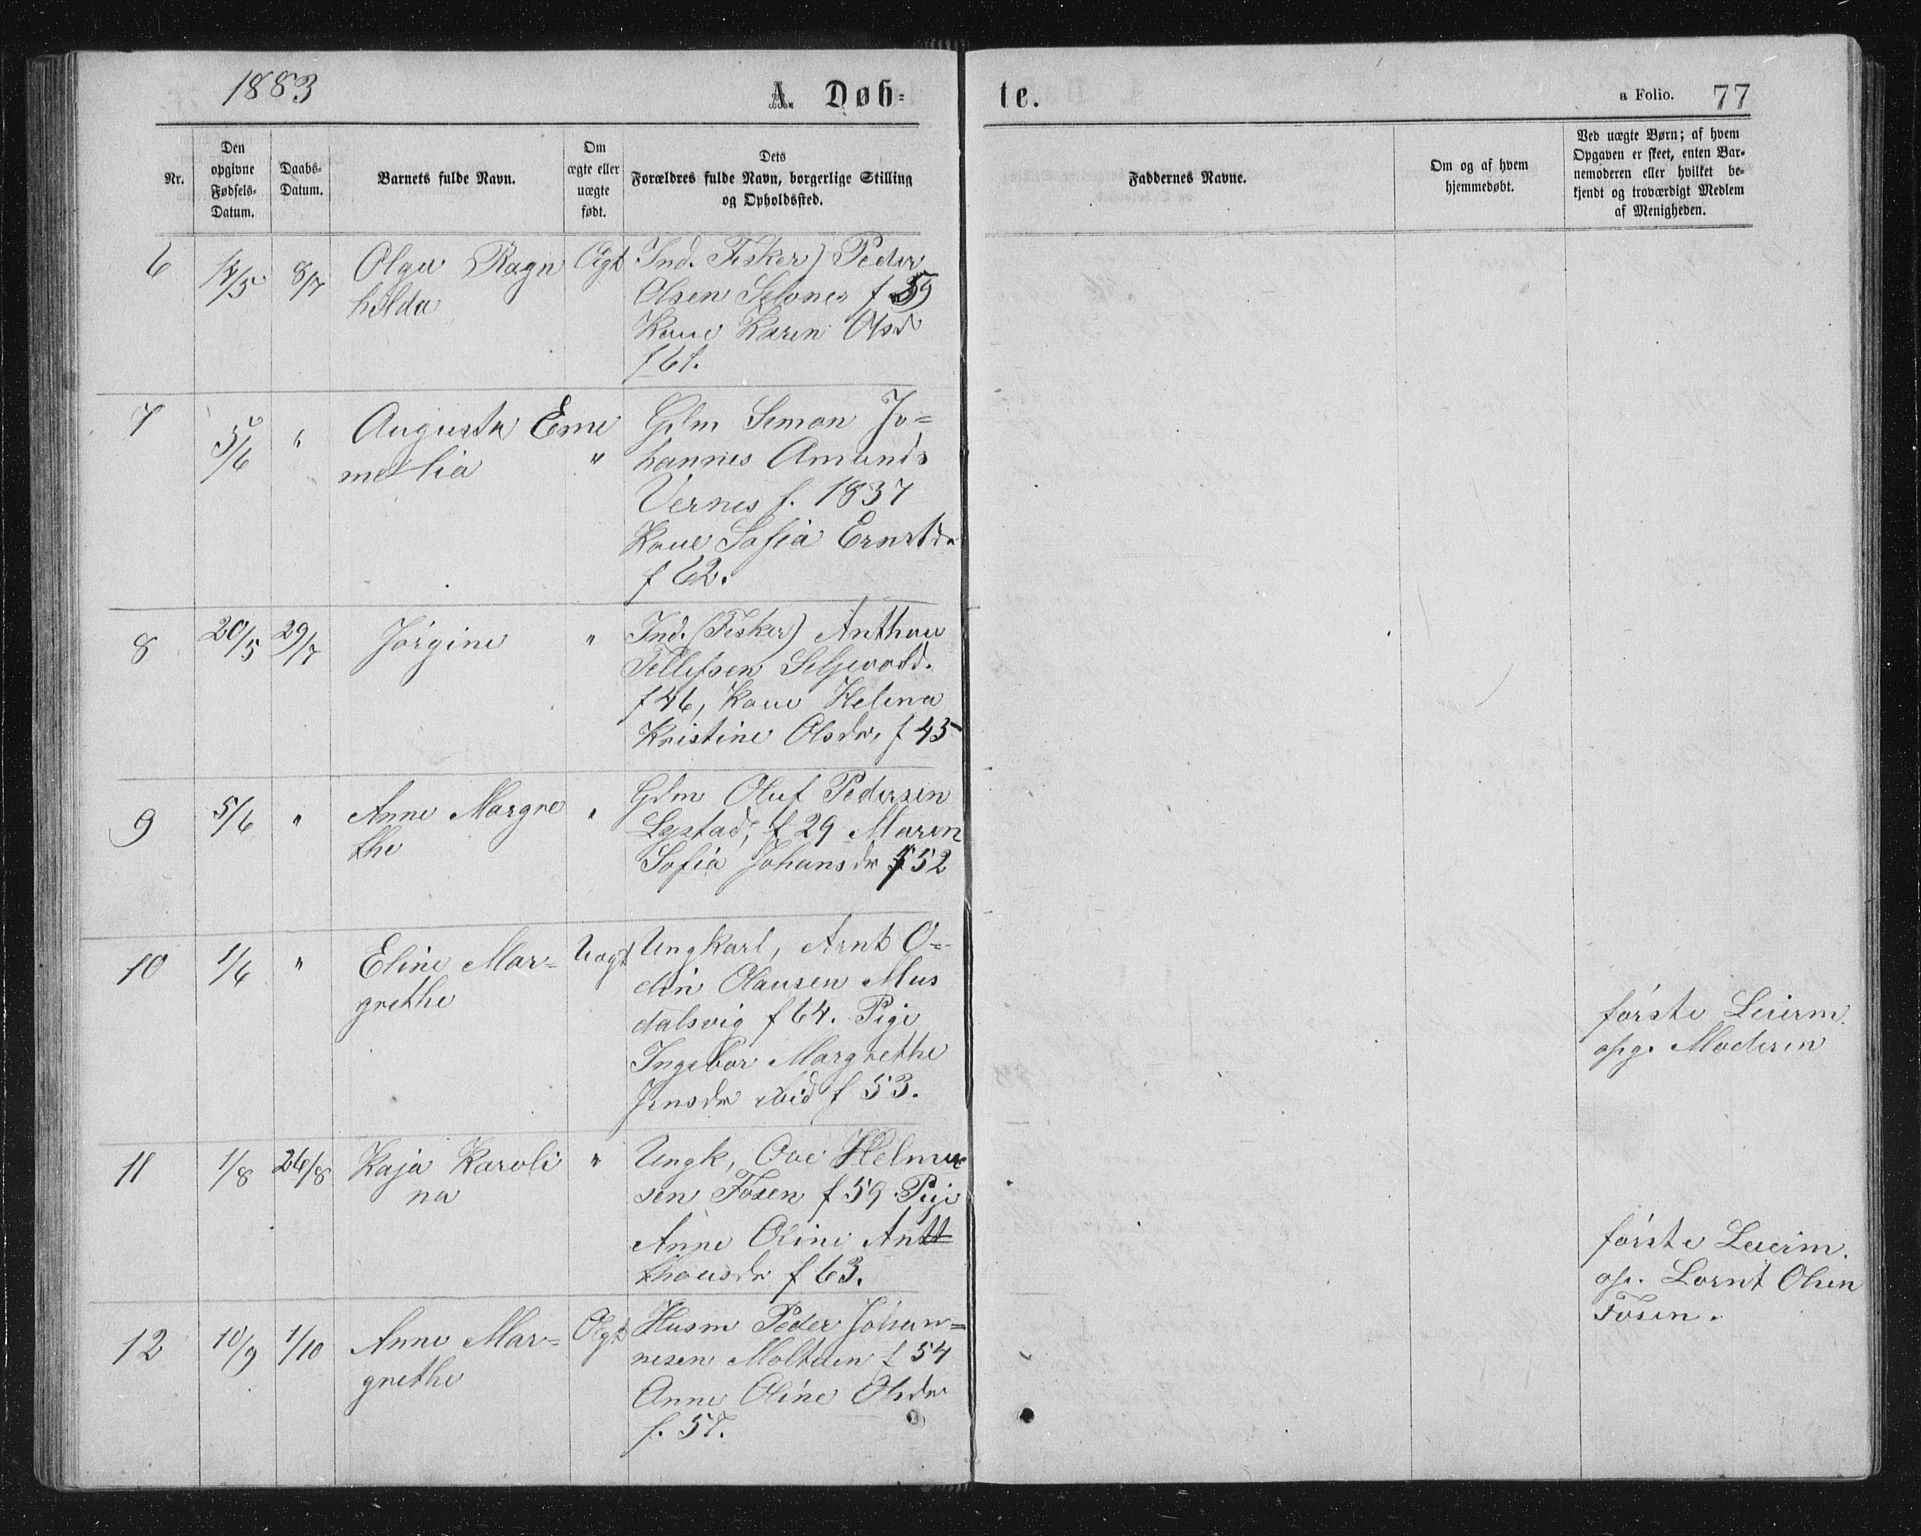 1883
A. Døb-
te.
a Folio. 77
Nr.
Den
opgivne
Fødsels-
Datum.
Daabs-
Datum.
Barnets fulde Navn.
Om
ægte eller
uægte
født.
Dets
Forældres fulde Navn, borgerlige Stilling
og Opholdssted.
Faddernes Navne.
Om og af hvem
hjemmedøbt.
Ved uægte Børn; af hvem
Opgaven er skeet, enten Bar-
nemoderen eller hvilket be-
kjendt og troværdigt Medlem
af Menigheden.
6 14/5 8/7 Olga Ragn Ægt Ind. Fisker) Peder
hilda Olsen Selsnes f 59
Kone Karen Olsd
f 61.
7 5/6 " Augusta Eme " Gdm Simon Jo=
melia hannes Amunds
Vernes f. 1837
Kone Sofia Ernstdr
f 62.
8 20/5 29/7 Jørgine " Ind. (Fisker) Anthon
Tellefsen Seljevold.
f 46, Kone Helena
Kristine Olsdr, f 43
9 5/6 " Anne Margre " Gdm Oluf Pedersen
the Lystad, f 29 Maren
Sofia Johansdr f 52
10 1/6 " Eline Mar= Uægt Ungkarl, Arnt O=
grethe din Olausen Mus
dalsvig f 64. Pige
Ingebor Margrethe
Jensdr ibid f 53.
første Leierm.
opg. Moderen
11 1/8 26/8 Kaja Karoli " Ungk, Ove Helmer
na sen Fosen f 59 Pige
Anne Oline Antt
thonsdr f 63.
første Leierm.
op. Lornt Olsen
Fosen.
12 10/9 1/10 Anne Mar= Ægt Husm Peder Johan=
grethe nesen Molteen f 54
Anne Oline Olsdr
f. 57.